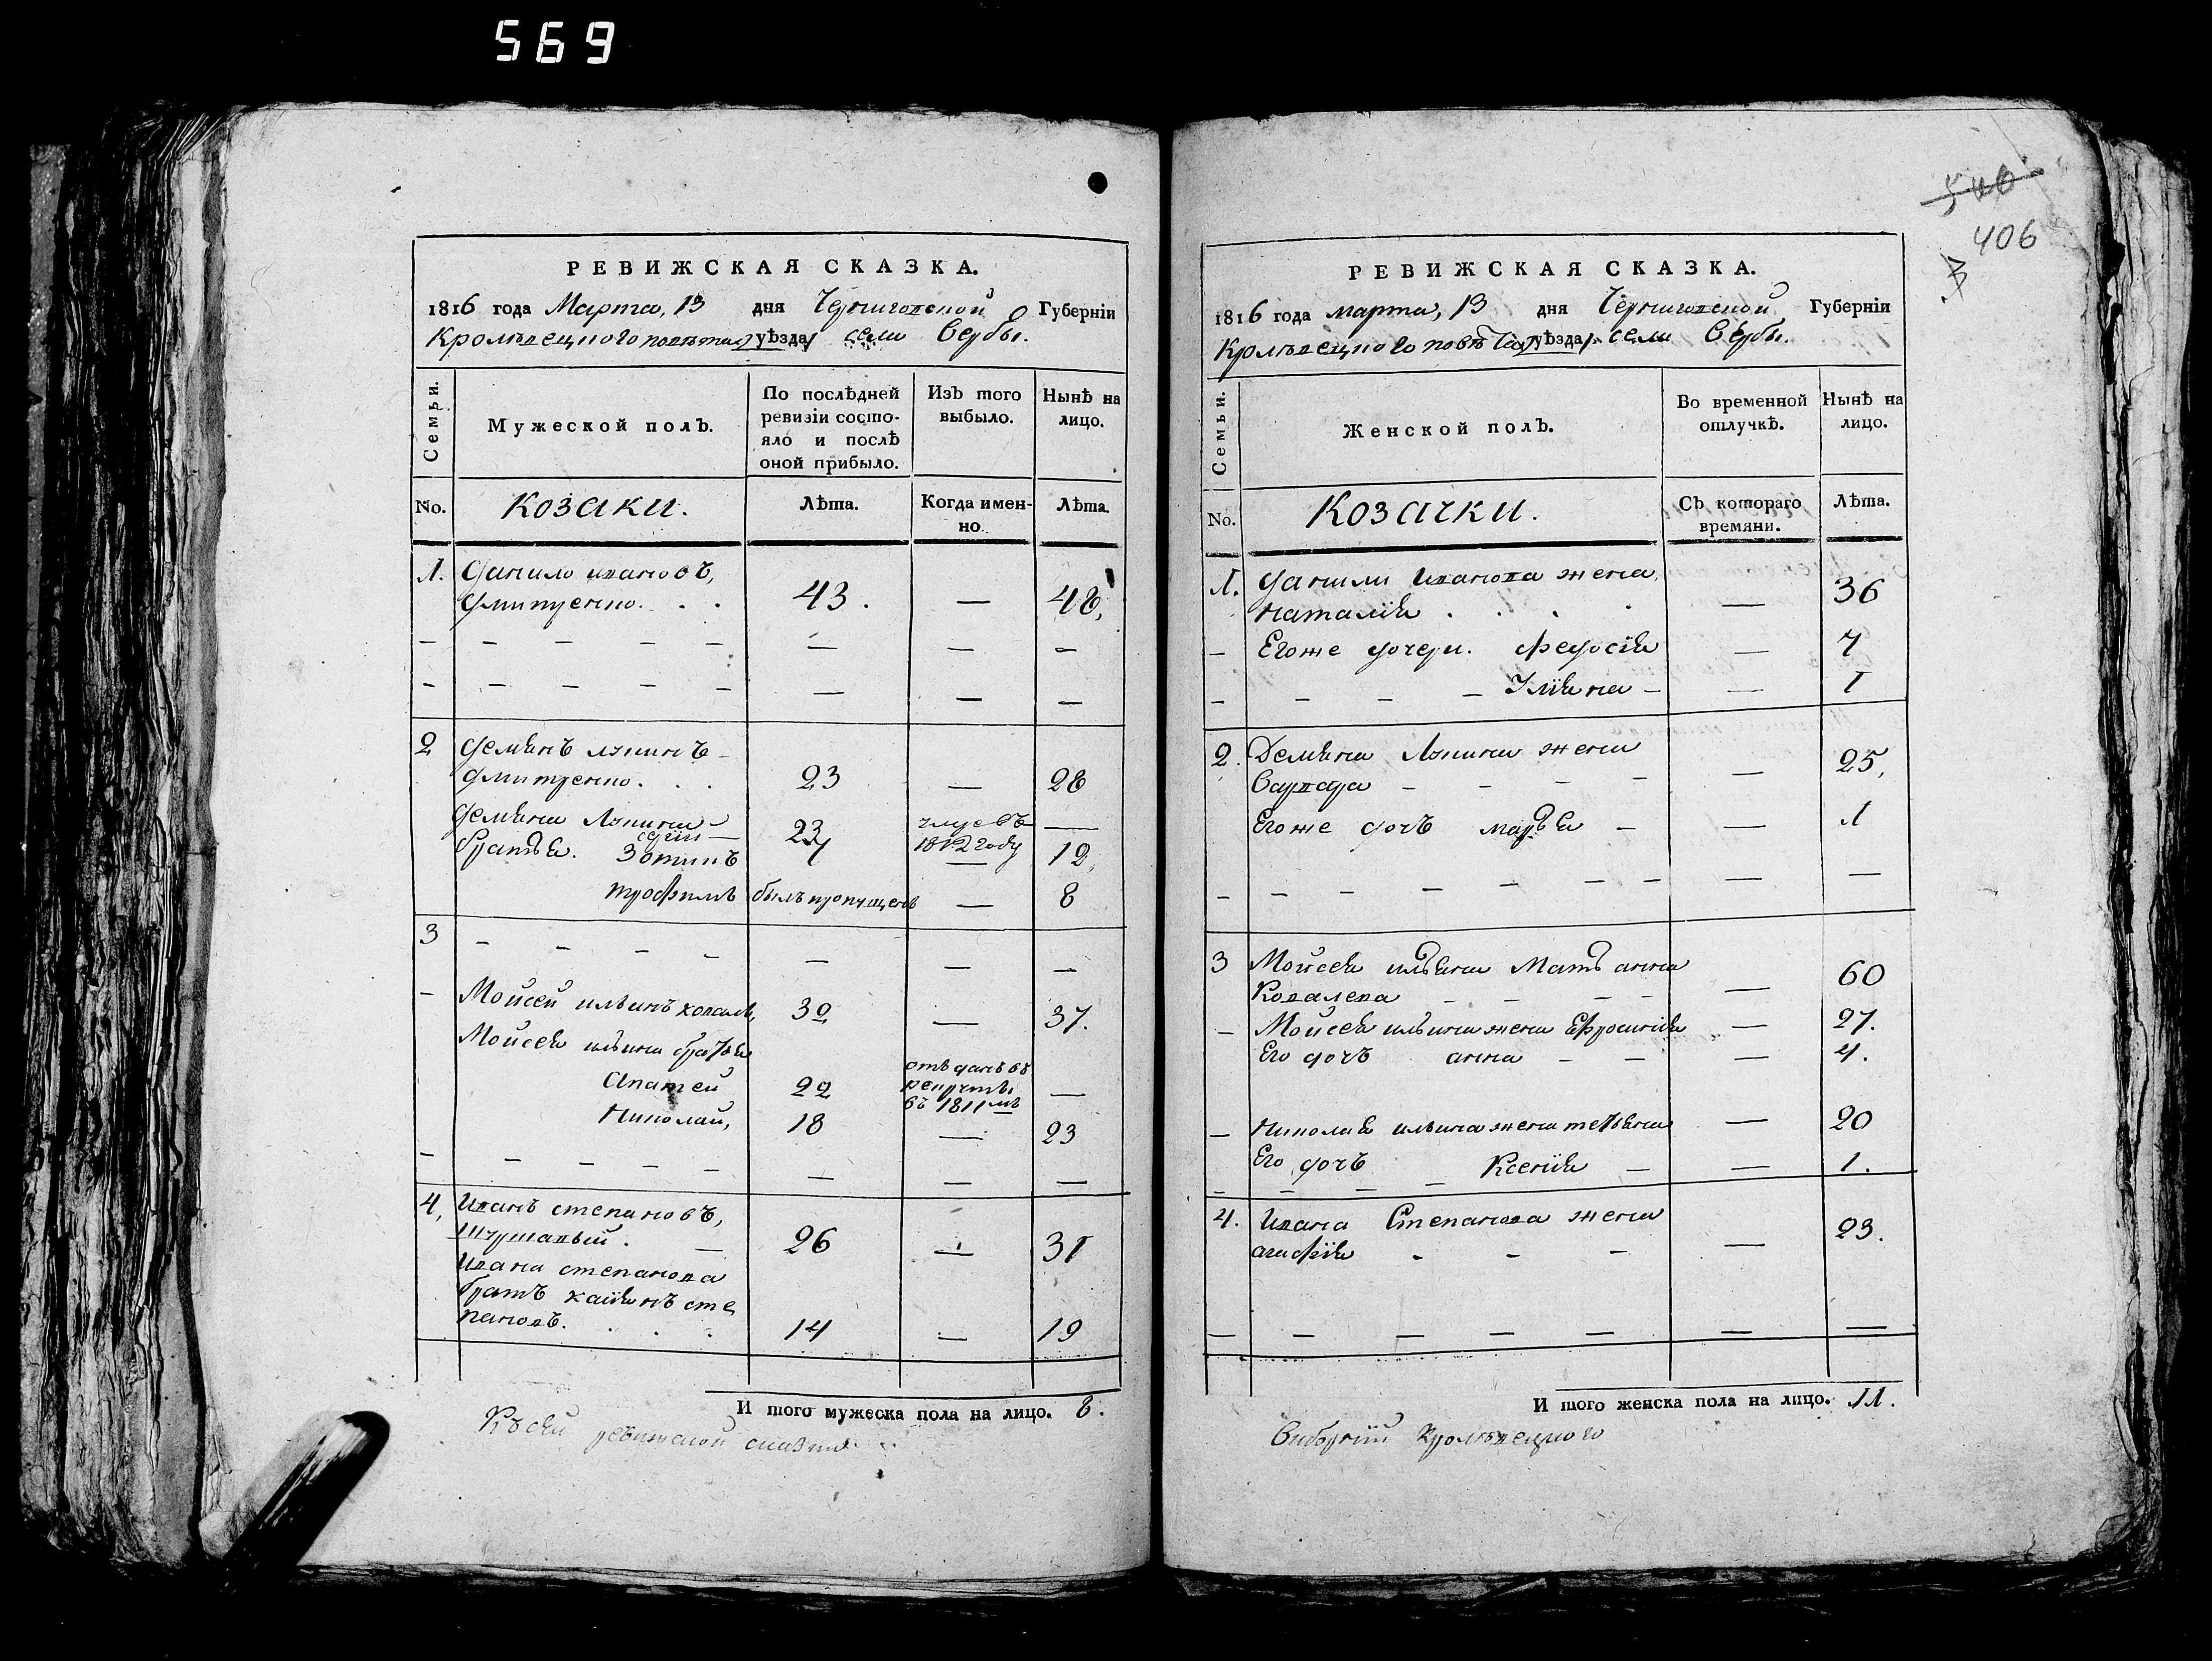 569
РЕВИЖСКАЯ СКАЗКА.
1816 года Марта, 13 дня Черниговской Губерніи
Кролѣвецкого повѣта уѣзда села Вербы.
Семьи.
Мужеской полЪ.
По послѣдней ревизіи состо-
яло и послѣ
оной прибыло.
ИзЪ того
выбыло.
Нынѣ на
лицо.
No.
Козаки.
Лѣта.
Когда имен-
но.
Лѣта.
1. Данило ивановъ,
дмитренко. . . 43. — 48,
2 Демянъ
дмитренко. . . 23 — 28
Демяна
братья. Зотикъ 7 — 12
1812 году
трофимъ былъ пропущенъ — 8
3
Мойсей ильинъ коваль, 32 — 37.
Мойсея ильина братья
Ипатей 22 отданъ въ
рекруты
въ 1811мъ —
Николай, 18 — 23
4, Иванъ степановъ,
26 — 31
Ивана степанова
братъ касиянъ сте
пановъ. . . . 14 — 19
И того мужеска пола на лицо. 8.
Къ сей ревижской сказки
540
406
РЕВИЖСКАЯ СКАЗКА.
1816 года марта, 13 дня Черниговской Губерніи
Кролѣвецкого повѣта уѣзда села Вербы.
Семьи.
Женской полЪ.
Во временной
отлучкѣ.
Нынѣ на
лицо.
No.
Козачки.
СЪ котораго
времяни.
Лѣта.
1. Данили Иванова жена,
Наталия . . . — 36
Егоже дочери. Федосія — 7
Уліяна — — 1
2. Демяна жена
Варвара — — — — 25,
Егоже дочь марья — — 1
3 Мойсея ильина Мать анна
Ковалева — — — — 60
— Мойсея ильина жена Ефросинія — 27.
Его дочь анна — — — 4.
— Николая ильина жена татьяна — 20
Его дочъ Ксенія — — 1.
4. Ивана Степанова жена
агафія - - - — 23.
И того женска пола на лицо. 11.
Виборній Кролѣвецкого